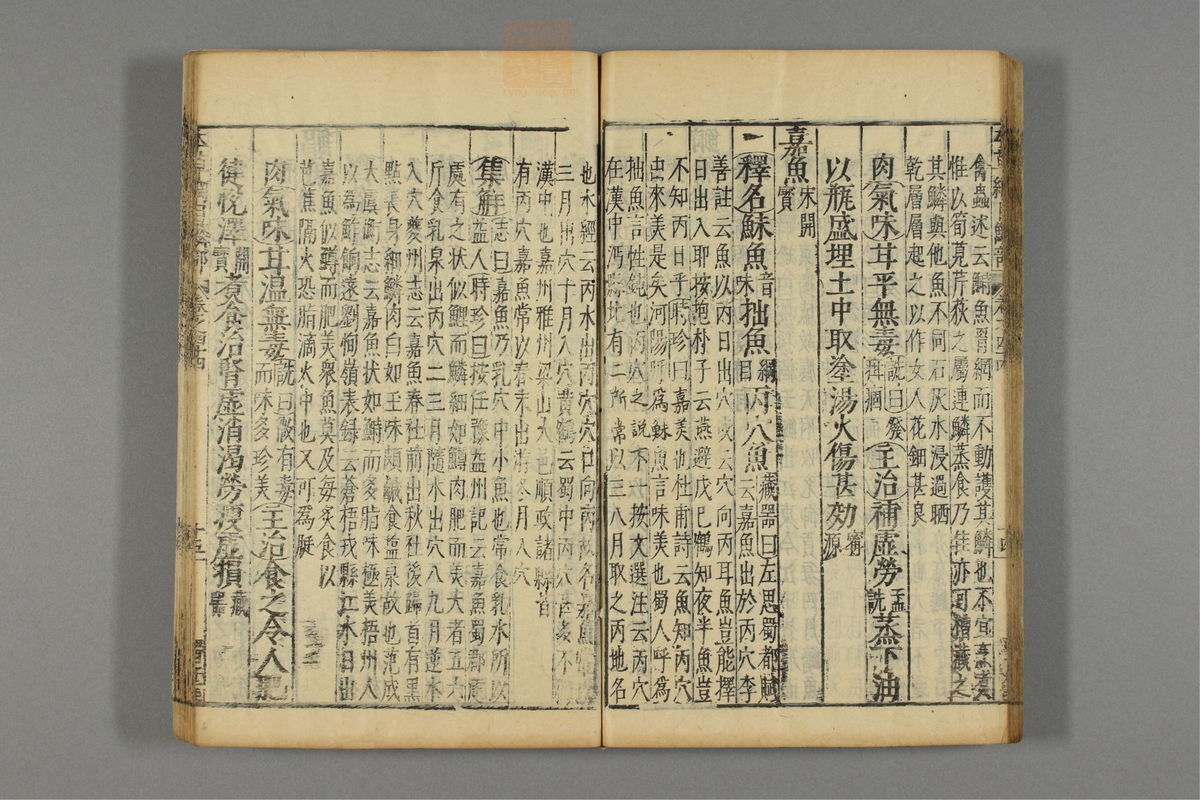 禽蟲述云鰣魚罥網而不動護其鱗也不宜烹煮
惟以筍莧芹荻之屬連鱗蒸食乃佳亦可糟藏之
其鱗與他魚不同石灰水浸過晒
乾層層起之以作女人花鈿甚良
肉氣味甘平無毒詵曰發疳痼主治補虛勞孟詵蒸下油
以瓶盛埋土中取塗湯火傷甚効寗源
嘉魚宋開寶
釋名鮇魚音味拙魚綱目丙穴魚藏器曰左思蜀都賦云嘉魚出於丙穴李
善註云魚以丙日出穴或云穴向丙耳魚豈能擇
日出入耶按抱朴子云燕避戊己鶴知夜半魚豈
不知丙日乎時珍曰嘉美也杜甫詩云魚知丙穴
由來美是矣河陽呼爲鮇魚言味美也蜀人呼爲
拙魚言性鈍也丙穴之說不一按文選注云丙穴
在漢中沔縣北有二所常以三八月取之丙地名
也水經云丙水出丙穴穴口向丙故名嘉魚
三月出穴十月入穴黄鶴云蜀中丙穴甚多不
漢中也嘉州雅州梁山大邑順政諸縣皆
有丙穴嘉魚常以春末出游冬月入穴
集解志曰嘉魚乃乳穴中小魚也常食乳水所以
益人時珍曰按任豫益州記云嘉魚蜀郡處
處有之状似鯉而鱗細如鱒肉肥而美大者五六
斤食乳泉出丙穴二三月隨水出穴八九月逆水
入穴夔州志云嘉魚春社前出秋社後歸首有黑
點長身細鱗肉白如玉味頗鹹食鹽泉故也范成
大虞衡志云嘉魚状如鰣而多脂味極美梧州人
以為鮓餉遠劉恂嶺表録云蒼梧戎縣江水口出
嘉魚似鱒而肥美衆魚莫及每炙食以
芭蕉隔火恐脂滴火中也又可爲艇
肉氣味甘温無毒詵曰微有毒而味多珍美主治食之令人肥
健恱澤開寶煮食治腎虛消渴勞瘦虛損藏器